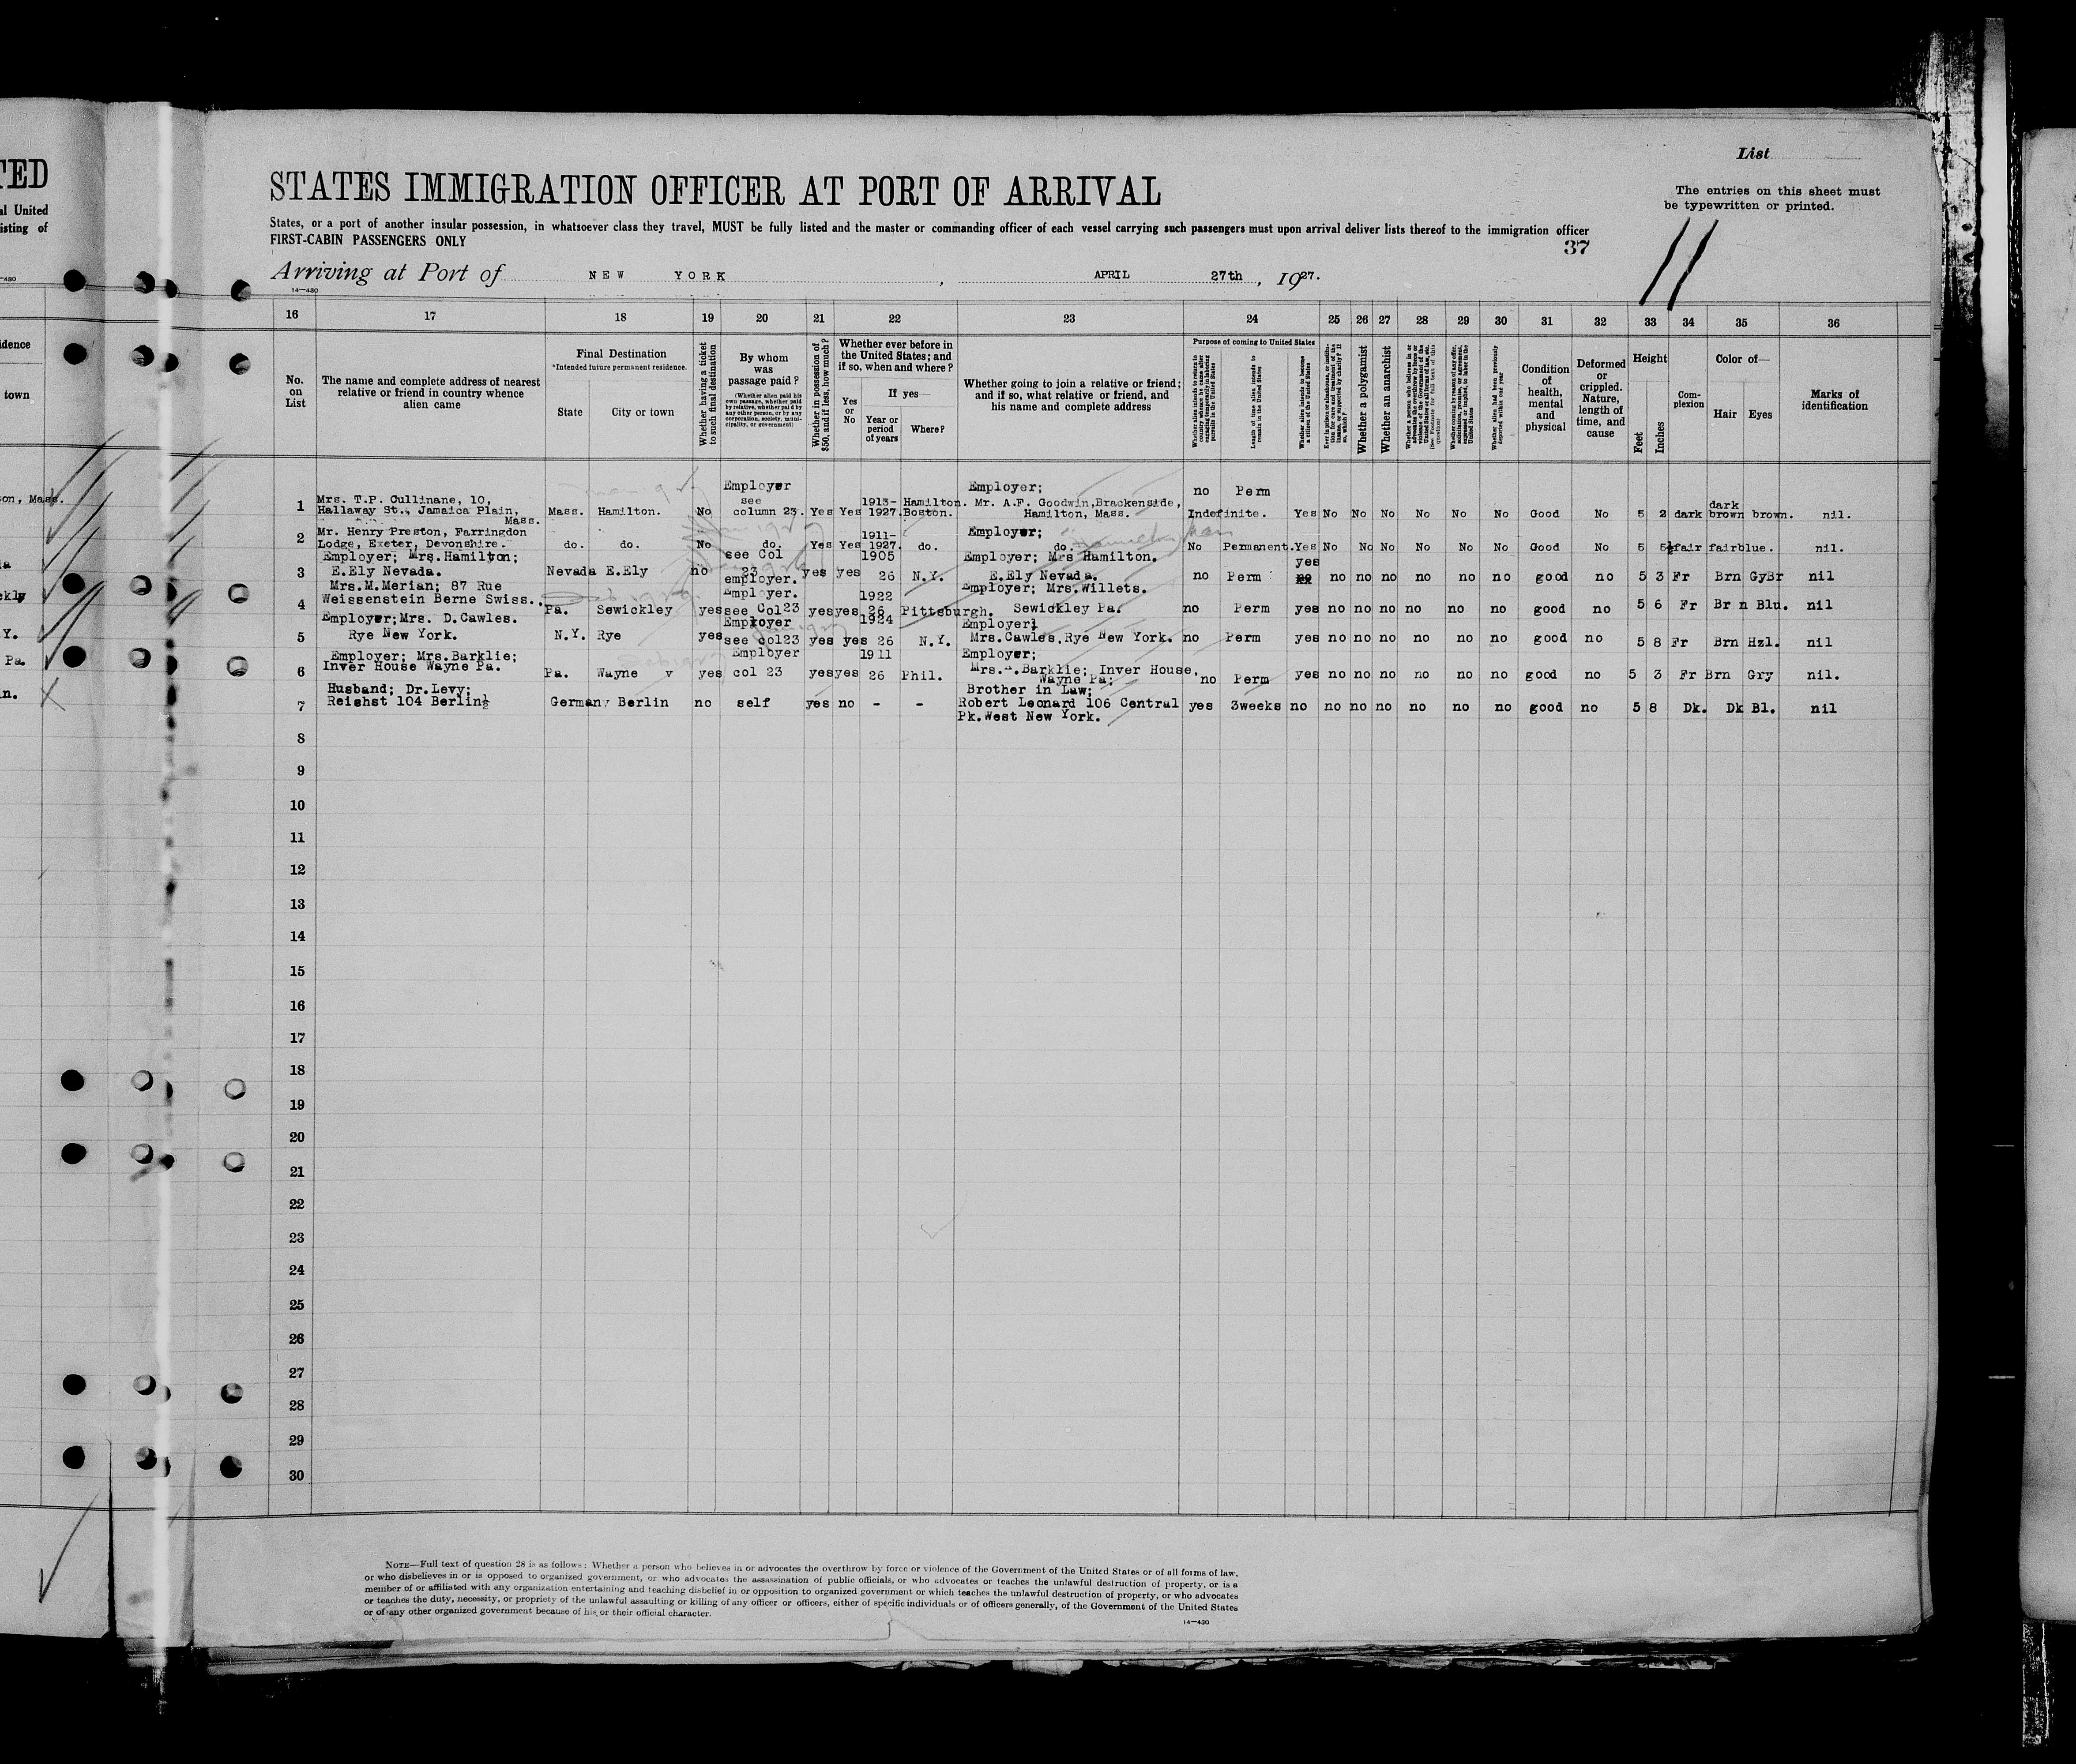 TED
al United
isting of
List
STATES IMMIGRATION OFFICER AT PORT OF ARRIVAL
The entries on this sheet must
be typewritten or printed.
States, or a port of another insular possession, in whatsoever class they travel, MUST be fully listed and the master or commanding officer of each vessel carrying such passengers must upon arrival deliver lists thereof to the immigration officer
FIRST-CABIN PASSENGERS ONLY
37
11
Arriving at Port of NEW YORK, APRIL 27th, 1927.
14—430
16 17 18 19 20 21 22 23 24 25 26 27 28 29 30 31 32 33 34 35 36
No. on List
The name and complete address of nearest relative or friend in country whence alien came
Final Destination
*Intended future permanent residence.
State
City or town
Whether having a ticket to such final destination
By whom was passage paid?
(Whether alien paid his own passage, whether paid by relative, whether paid by any other person, or by any corporation, society, municipality, or government)
Whether in possession of $50, and if less, how much?
Whether ever before in the United States; and if so, when and where?
Yes or No
If yes—
Year or period of years
Where?
Whether going to join a relative or friend; and if so, what relative or friend, and his name and complete address
Purpose of coming to United States
Whether alien intends to return to country whence he came after engaging temporarily in laboring pursuits in the United States
Length of time alien intends to remain in the United States
Whether alien intends to become a citizen of the United States
Ever in prison or almshouse, or institution for care and treatment of the insane, or supported by charity? If so, which?
Whether a polygamist
Whether an anarchist
Whether a person who believes in or advocates the overthrow by force or violence of the Government of the United States or all forms of law, etc. (See Footnote for full text of this question)
Whether coming by reason of any offer, solicitation, promise, or agreement, expressed or implied, to labor in the United States
Whether alien had been previously deported within one year
Condition of health, mental and physical
Deformed or crippled. Nature, length of time, and cause
Height
Feet
Inches
Complexion
Color of—
Hair
Eyes
Marks of identification
idence
town
on, Mass.
1 Mrs. T.P. Cullinane, 10, Hallaway St., Jamaica Plain, Mass. Mass. Hamilton. No Employer see column 23. Yes Yes 1913-1927. Hamilton. Boston. Employer; Mr. A.F. Goodwin, Brackenside, Hamilton, Mass. no Perm Indefinite. Yes No No No No No No Good No 5 2 dark dark brown brown. nil.
2 Mr. Henry Preston, Farringdon Lodge, Exeter, Devonshire. do. do. No do. Yes Yes 1911-1927. do. Employer; do. No Permanent. Yes No No No No No No Good No 5 5½ fair fair blue. nil.
3 Employer; Mrs.Hamilton; E.Ely Nevada. Nevada E.Ely no see Col 23 employer. yes yes 1905 26 N.Y. Employer; Mrs Hamilton. E.Ely Nevada. no Perm yes no no no no no no no good no 5 3 Fr Brn GyBr nil
4 Mrs.M.Merian; 87 Rue Weissenstein Berne Swiss.. Pa. Sewickley yes Employer. see Col23 yes yes 1922 26 Pittsburgh. Employer; Mrs.Willets. Sewickley Pa. no Perm yes no no no no no no good no 5 6 Fr Br n Blu. nil
5 Employer;Mrs. D.Cawles. Rye New York. N.Y. Rye yes Employer see col23 yes yes 1924 26 N.Y. Employer; Mrs.Cawles,Rye New York. no Perm yes no no no no no no good no 5 8 Fr Brn Hzl. nil
6 Employer; Mrs.Barklie; Inver House Wayne Pa. Pa. Wayne v yes Employer col 23 yes yes 1911 26 Phil. Employer; Mrs.A.Barklie; Inver House, Wayne Pa; no Perm yes no no no no no no good no 5 3 Fr Brn Gry nil.
7 Husband; Dr.Levy; Reishst 104 Berlin½ Germany Berlin no self yes no - - Brother in Law; Robert Leonard 106 Central Pk.West New York. yes 3weeks no no no no no no no good no 5 8 Dk. Dk Bl. nil
8
9
10
11
12
13
14
15
16
17
18
19
20
21
22
23
24
25
26
27
28
29
30
NOTE—Full text of question 28 is as follows: Whether a person who believes in or advocates the overthrow by force or violence of the Government of the United States or of all forms of law,
or who disbelieves in or is opposed to organized government, or who advocates the assassination of public officials, or who advocates or teaches the unlawful destruction of property, or is a
member of or affiliated with any organization entertaining and teaching disbelief in or opposition to organized government or which teaches the unlawful destruction of property, or who advocates
or teaches the duty, necessity, or propriety of the unlawful assaulting or killing of any officer or officers, either of specific individuals or of officers generally, of the Government of the United States
or of any other organized government because of his or their official character.
14—430